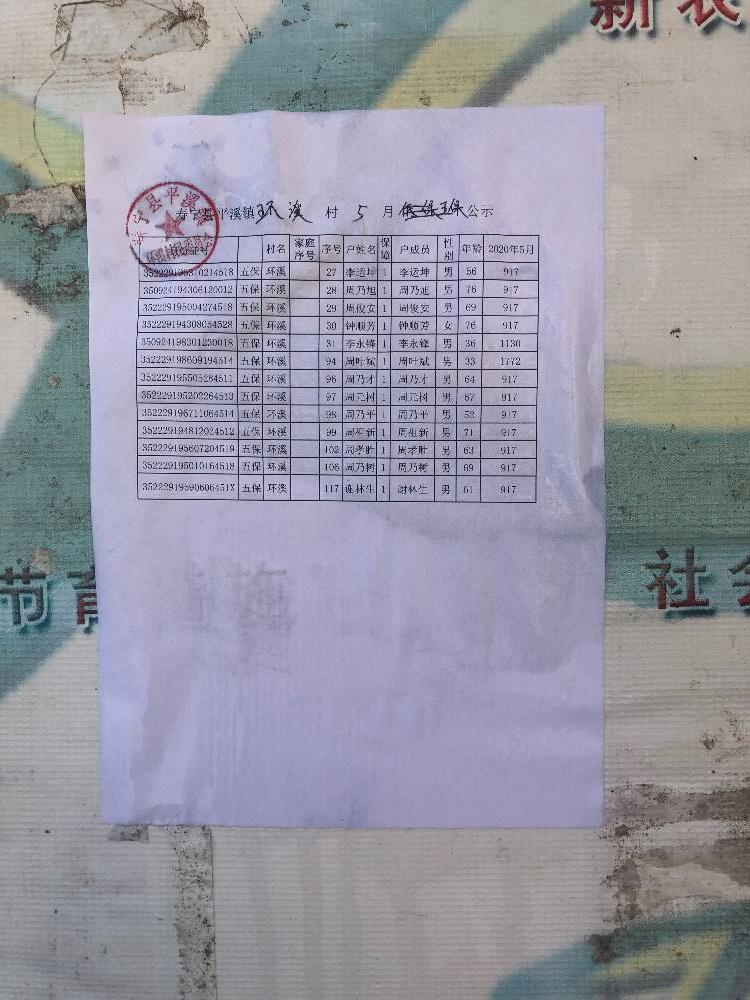 新农
寿宁县平溪镇环溪 村 5 月低保五保公示
证号 村名 家庭序号 序号 户姓名 保障 户成员 性别 年龄 2020年5月
352229195310214518 五保 环溪 27 李运坤 1 李运坤 男 56 917
350924194306120012 五保 环溪 28 周乃旭 1 周乃旭 男 76 917
352229195004274518 五保 环溪 29 周俊安 1 周俊安 男 69 917
352229194308054528 五保 环溪 30 钟顺芳 1 钟顺芳 女 76 917
350924198301230018 五保 环溪 31 李永锋 1 李永锋 男 36 1130
352229198609194514 五保 环溪 94 周叶斌 1 周叶斌 男 33 1772
352229195505284511 五保 环溪 96 周乃才 1 周乃才 男 64 917
352229195202264513 五保 环溪 97 周元树 1 周元树 男 67 917
352229196711064514 五保 环溪 98 周乃平 1 周乃平 男 52 917
352229194812024512 五保 环溪 99 周祖新 1 周祖新 男 71 917
352229195607204519 五保 环溪 102 周孝胜 1 周孝胜 男 63 917
352229195010164518 五保 环溪 106 周乃树 1 周乃树 男 69 917
35222919590606451X 五保 环溪 117 谢林生 1 谢林生 男 61 917
节育
社会